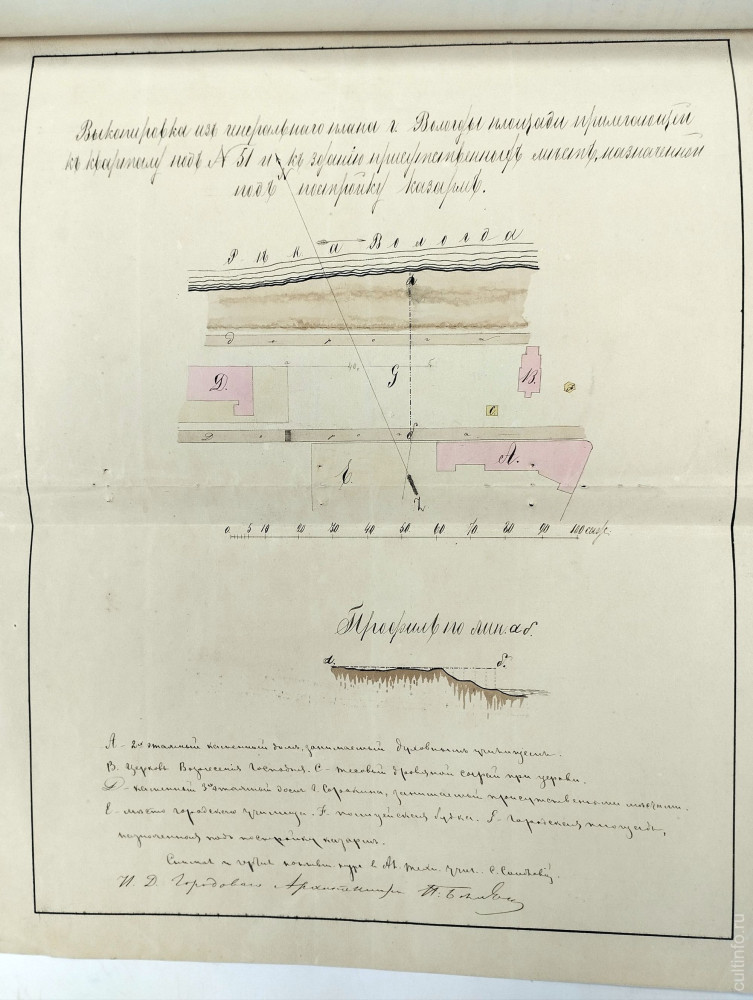 Выкопировка изъ генеральнаго плана г. Вологды площади прилегающей
къ кварталу подъ № 51 и къ зданію присутственныхъ мѣстъ, назначенной
подъ постройку казармъ.
Рѣка Вологда
а
дорога
40.
Д.
G
В.
С
Дорога
б
Е.
А.
0. 5 10 20 30 40 50 60 70 80 90 100 саж.
Профиль по лин. аб.
а. б.
А - 2х этажный каменный домъ, занимаемый духовнымъ училищемъ.
В. Церковь Вознесенія Господня. С - тесовый дровяной сарай при церкви.
Д - каменный 3х этажный домъ г. Сорокина, занимаемый присутственными мѣстами.
Е - мѣсто городского училища. F. полицейская будка. G - Городская площадь,
назначенная подъ постройку казармъ.
Снималъ и чертилъ
И. Д. Городового Архитектора
cultinfo.ru